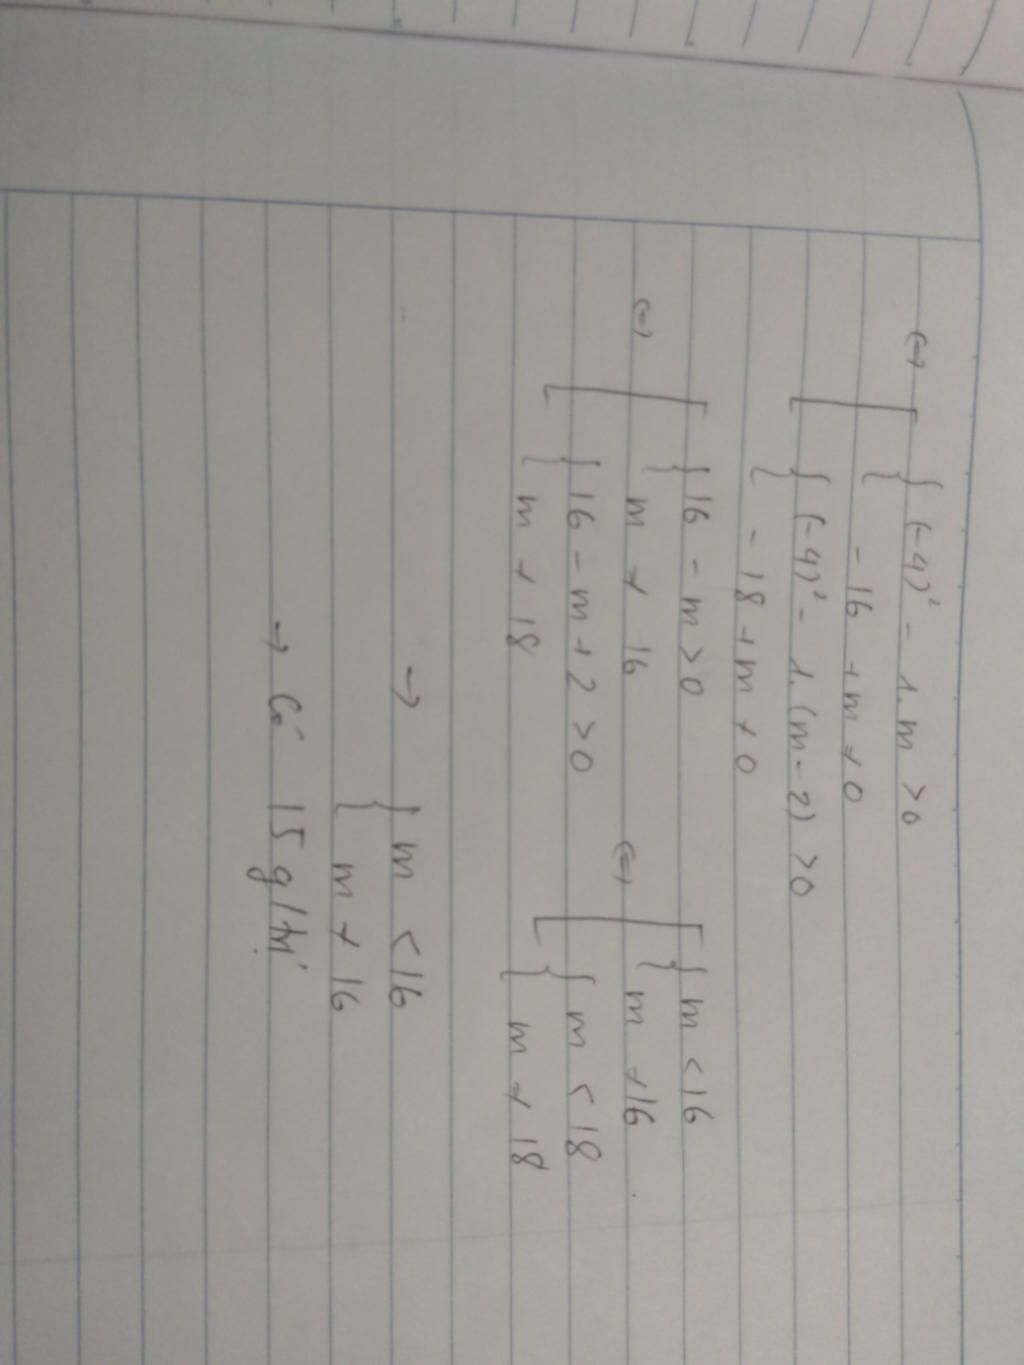 ⇔ [ { (-4)² - 1.m > 0
{ -16 + m ≠ 0
{ (-4)² - 1.(m-2) > 0
{ -18 + m ≠ 0
⇔ [ { 16 - m > 0 ⇔ [ { m < 16
{ m ≠ 16 { m ≠ 16
{ 16 - m + 2 > 0 { m < 18
{ m ≠ 18 { m ≠ 18
→ { m < 16
{ m ≠ 16
→ Có 15 g/trị